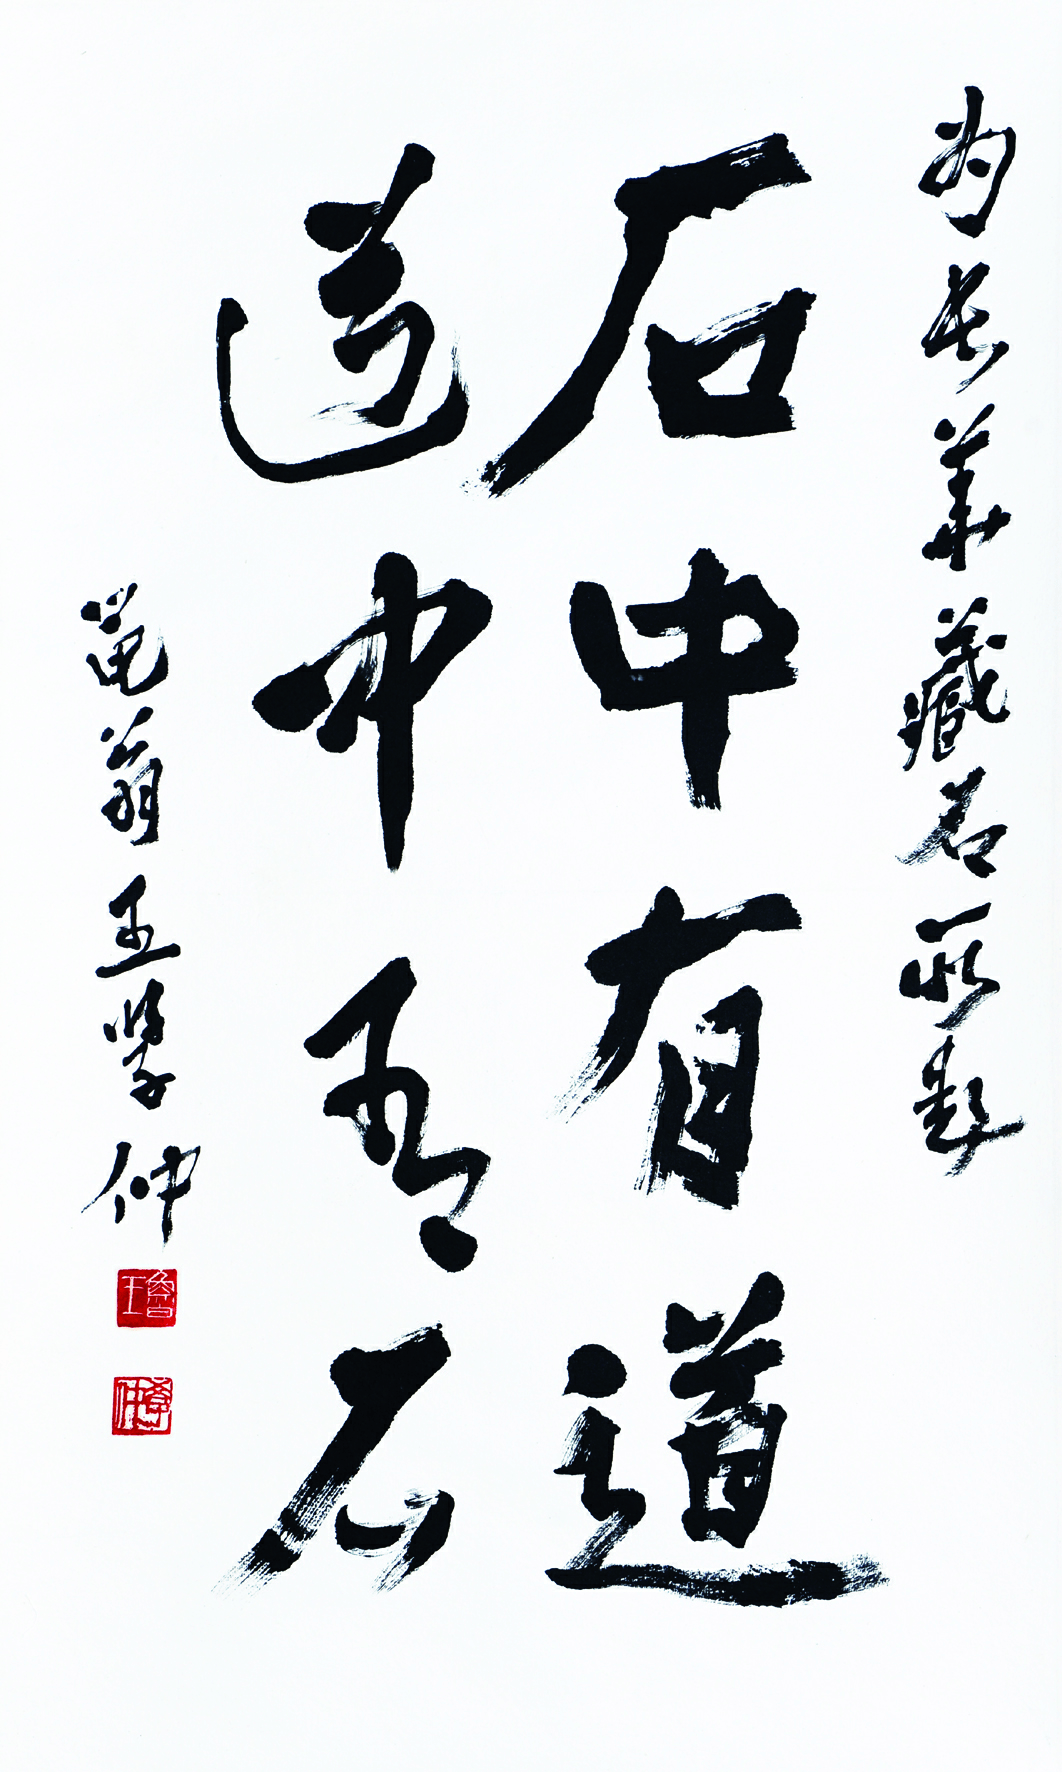 为长华藏石所题
石中有道
道中有石
黾翁王学仲
王鲁
学仲